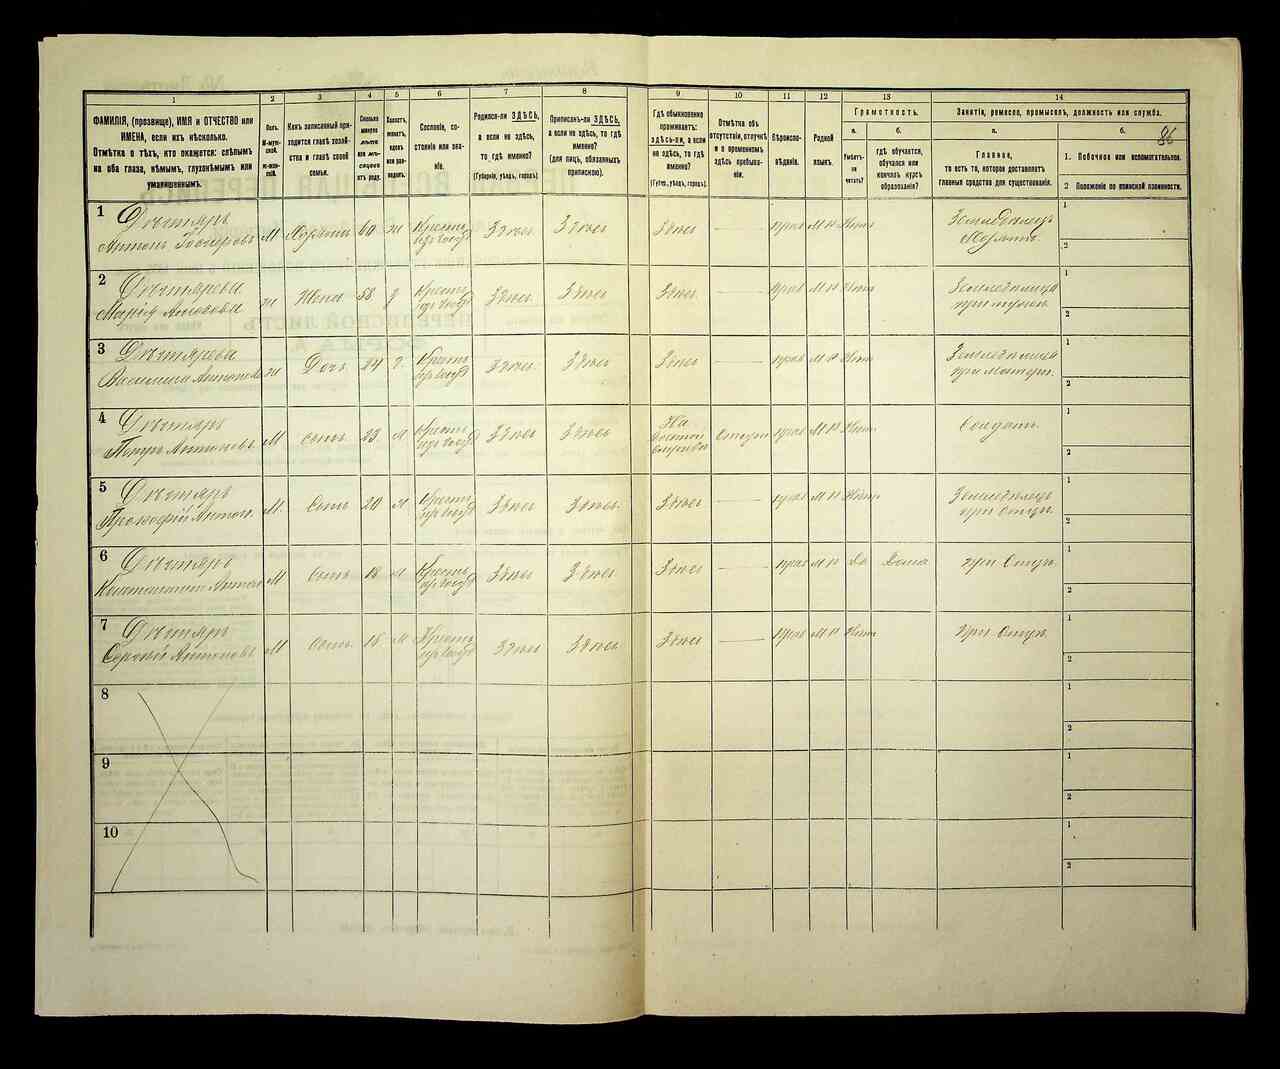 86
1
2
3
4
5
6
7
8
9
10
11
12
13
14
ФАМИЛІЯ, (прозвище), ИМЯ и ОТЧЕСТВО или
ИМЕНА, если ихъ нѣсколько.
Отмѣтка о тѣхъ, кто окажется: слѣпымъ
на оба глаза, нѣмымъ, глухонѣмымъ или
умалишеннымъ.
Полъ.
М-муж-
ской.
Ж-жен-
скій.
Какъ записанный при-
ходится главѣ хозяй-
ства и главѣ своей
семьи.
Сколько
минуло
лѣтъ
или мѣ-
сяцевъ
отъ роду.
Холостъ,
женатъ,
вдовъ
или раз-
веденъ.
Сословіе, со-
стояніе или зва-
ніе.
Родился-ли ЗДѢСЬ,
а если не здѣсь,
то гдѣ именно?
(Губернія, уѣздъ, городъ).
Приписанъ-ли ЗДѢСЬ,
а если не здѣсь, то гдѣ
именно?
(для лицъ, обязанныхъ
припискою).
Гдѣ обыкновенно
проживаетъ:
здѣсь-ли, а если
не здѣсь, то гдѣ
именно?
(Губер., уѣздъ, городъ).
Отмѣтка объ
отсутствіи, отлучкѣ
и о временномъ
здѣсь пребыва-
ніи.
Вѣроиспо-
вѣданіе.
Родной
языкъ.
Грамотность.
а.
Умѣетъ-
ли
читать?
б.
гдѣ обучается,
обучался или
кончилъ курсъ
образованія?
Занятія, ремесло, промыселъ, должность или служба.
а.
Главное,
то есть то, которое доставляетъ
главныя средства для существованія.
б.
1. Побочное или вспомогательное.
2 Положеніе по воинской повинности.
1
Дѣхтярь
Антонъ
М
Хозяинъ
60
ж
Крестъ
Здѣсь
Здѣсь
Здѣсь
прав
М Р
Нѣтъ
Земледѣлецъ
Хозяинъ
1
2
2
Дѣхтярева
Марія
ж
Жена
58
Крестъ
Здѣсь
Здѣсь
Здѣсь
прав
М Р
Нѣтъ
при мужѣ
1
2
3
Дѣхтярева
Василиса Антонова
ж
Дочь
24
Крестъ
Здѣсь
Здѣсь
Здѣсь
прав
М Р
Нѣтъ
при Матери
1
2
4
Дѣхтярь
М
сынъ
23
Крестъ
Здѣсь
Здѣсь
На
Военной
службѣ
прав
М Р
Нѣтъ
Солдатъ
1
2
5
Дѣхтярь
Прокофій Антон.
М.
Сынъ
20
Крестъ
Здѣсь
Здѣсь
Здѣсь
прав
М Р
Нѣтъ
Земледѣлецъ
при Отцѣ
1
2
6
Дѣхтярь
Константинъ Антоно
М
Сынъ
18
Крестъ
Здѣсь
Здѣсь
Здѣсь
прав
М Р
Да
Дома
при Отцѣ
1
2
7
Дѣхтярь
Сергѣй Антоновъ
М
Сынъ
Крестъ
Здѣсь
Здѣсь
Здѣсь
прав
М Р
Нѣтъ
При Отцѣ
1
2
8
1
2
9
1
2
10
1
2